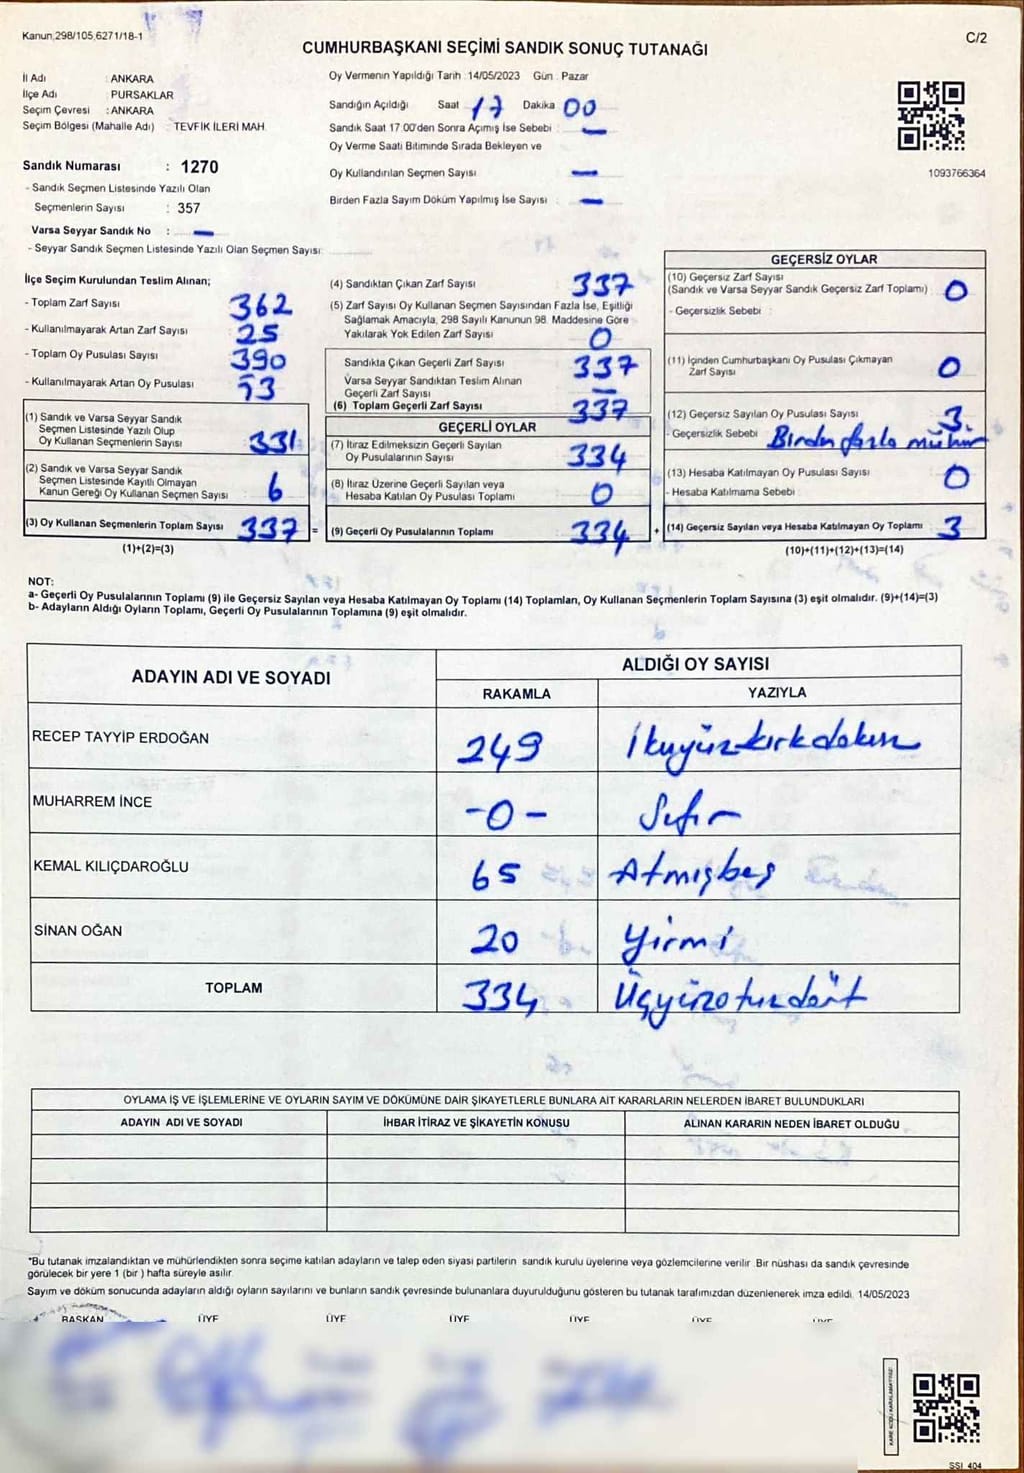 Kanun,298/105,6271/18-1
C/2
CUMHURBAŞKANI SEÇİMİ SANDIK SONUÇ TUTANAĞI
İl Adı : ANKARA
İlçe Adı : PURSAKLAR
Seçim Çevresi : ANKARA
Seçim Bölgesi (Mahalle Adı) : TEVFİK İLERİ MAH.
Sandık Numarası : 1270
- Sandık Seçmen Listesinde Yazılı Olan
Seçmenlerin Sayısı : 357
Varsa Seyyar Sandık No : —
- Seyyar Sandık Seçmen Listesinde Yazılı Olan Seçmen Sayısı:
Oy Vermenin Yapıldığı Tarih : 14/05/2023 Gün : Pazar
Sandığın Açıldığı Saat 17 Dakika 00
Sandık Saat 17:00'den Sonra Açımış İse Sebebi : —
Oy Verme Saati Bitiminde Sırada Bekleyen ve
Oy Kullandırılan Seçmen Sayısı —
Birden Fazla Sayım Döküm Yapılmış İse Sayısı : —
1093766364
İlçe Seçim Kurulundan Teslim Alınan;
- Toplam Zarf Sayısı 362
- Kullanılmayarak Artan Zarf Sayısı 25
- Toplam Oy Pusulası Sayısı 390
- Kullanılmayarak Artan Oy Pusulası 53
(1) Sandık ve Varsa Seyyar Sandık
Seçmen Listesinde Yazılı Olup
Oy Kullanan Seçmenlerin Sayısı 331
(2) Sandık ve Varsa Seyyar Sandık
Seçmen Listesinde Kayıtlı Olmayan
Kanun Gereği Oy Kullanan Seçmen Sayısı 6
(3) Oy Kullanan Seçmenlerin Toplam Sayısı 337 =
(1)+(2)=(3)
(4) Sandıktan Çıkan Zarf Sayısı 337
(5) Zarf Sayısı Oy Kullanan Seçmen Sayısından Fazla İse, Eşitliği
Sağlamak Amacıyla, 298 Sayılı Kanunun 98. Maddesine Göre
Yakılarak Yok Edilen Zarf Sayısı 0
Sandıkta Çıkan Geçerli Zarf Sayısı 337
Varsa Seyyar Sandıktan Teslim Alınan
Geçerli Zarf Sayısı —
(6) Toplam Geçerli Zarf Sayısı 337
GEÇERLİ OYLAR
(7) İtiraz Edilmeksizin Geçerli Sayılan
Oy Pusulalarının Sayısı 334
(8) İtiraz Üzerine Geçerli Sayılan veya
Hesaba Katılan Oy Pusulası Toplamı 0
(9) Geçerli Oy Pusulalarının Toplamı 334 +
GEÇERSİZ OYLAR
(10) Geçersiz Zarf Sayısı
(Sandık ve Varsa Seyyar Sandık Geçersiz Zarf Toplamı) 0
- Geçersizlik Sebebi :
(11) İçinden Cumhurbaşkanı Oy Pusulası Çıkmayan
Zarf Sayısı 0
(12) Geçersiz Sayılan Oy Pusulası Sayısı 3
- Geçersizlik Sebebi Birden fazla mühür
(13) Hesaba Katılmayan Oy Pusulası Sayısı 0
- Hesaba Katılmama Sebebi :
(14) Geçersiz Sayılan veya Hesaba Katılmayan Oy Toplamı 3
(10)+(11)+(12)+(13)=(14)
NOT:
a- Geçerli Oy Pusulalarının Toplamı (9) ile Geçersiz Sayılan veya Hesaba Katılmayan Oy Toplamı (14) Toplamları, Oy Kullanan Seçmenlerin Toplam Sayısına (3) eşit olmalıdır. (9)+(14)=(3)
b- Adayların Aldığı Oyların Toplamı, Geçerli Oy Pusulalarının Toplamına (9) eşit olmalıdır.
ADAYIN ADI VE SOYADI ALDIĞI OY SAYISI
RAKAMLA YAZIYLA
RECEP TAYYİP ERDOĞAN 249 İkiyüzkırkdokuz
MUHARREM İNCE -0- Sıfır
KEMAL KILIÇDAROĞLU 65 Atmışbeş
SİNAN OĞAN 20 Yirmi
TOPLAM 334 Üçyüzotuzdört
OYLAMA İŞ VE İŞLEMLERİNE VE OYLARIN SAYIM VE DÖKÜMÜNE DAİR ŞİKAYETLERLE BUNLARA AİT KARARLARIN NELERDEN İBARET BULUNDUKLARI
ADAYIN ADI VE SOYADI İHBAR İTİRAZ VE ŞİKAYETİN KONUSU ALINAN KARARIN NEDEN İBARET OLDUĞU
*Bu tutanak imzalandıktan ve mühürlendikten sonra seçime katılan adayların ve talep eden siyasi partilerin sandık kurulu üyelerine veya gözlemcilerine verilir. Bir nüshası da sandık çevresinde
görülecek bir yere 1 (bir ) hafta süreyle asılır.
Sayım ve döküm sonucunda adayların aldığı oyların sayılarını ve bunların sandık çevresinde bulunanlara duyurulduğunu gösteren bu tutanak tarafımızdan düzenlenerek imza edildi. 14/05/2023
BAŞKAN ÜYE ÜYE ÜYE ÜYE ÜYE ÜYE
KARE KODU KARALAMAYINIZ!
SSI_404